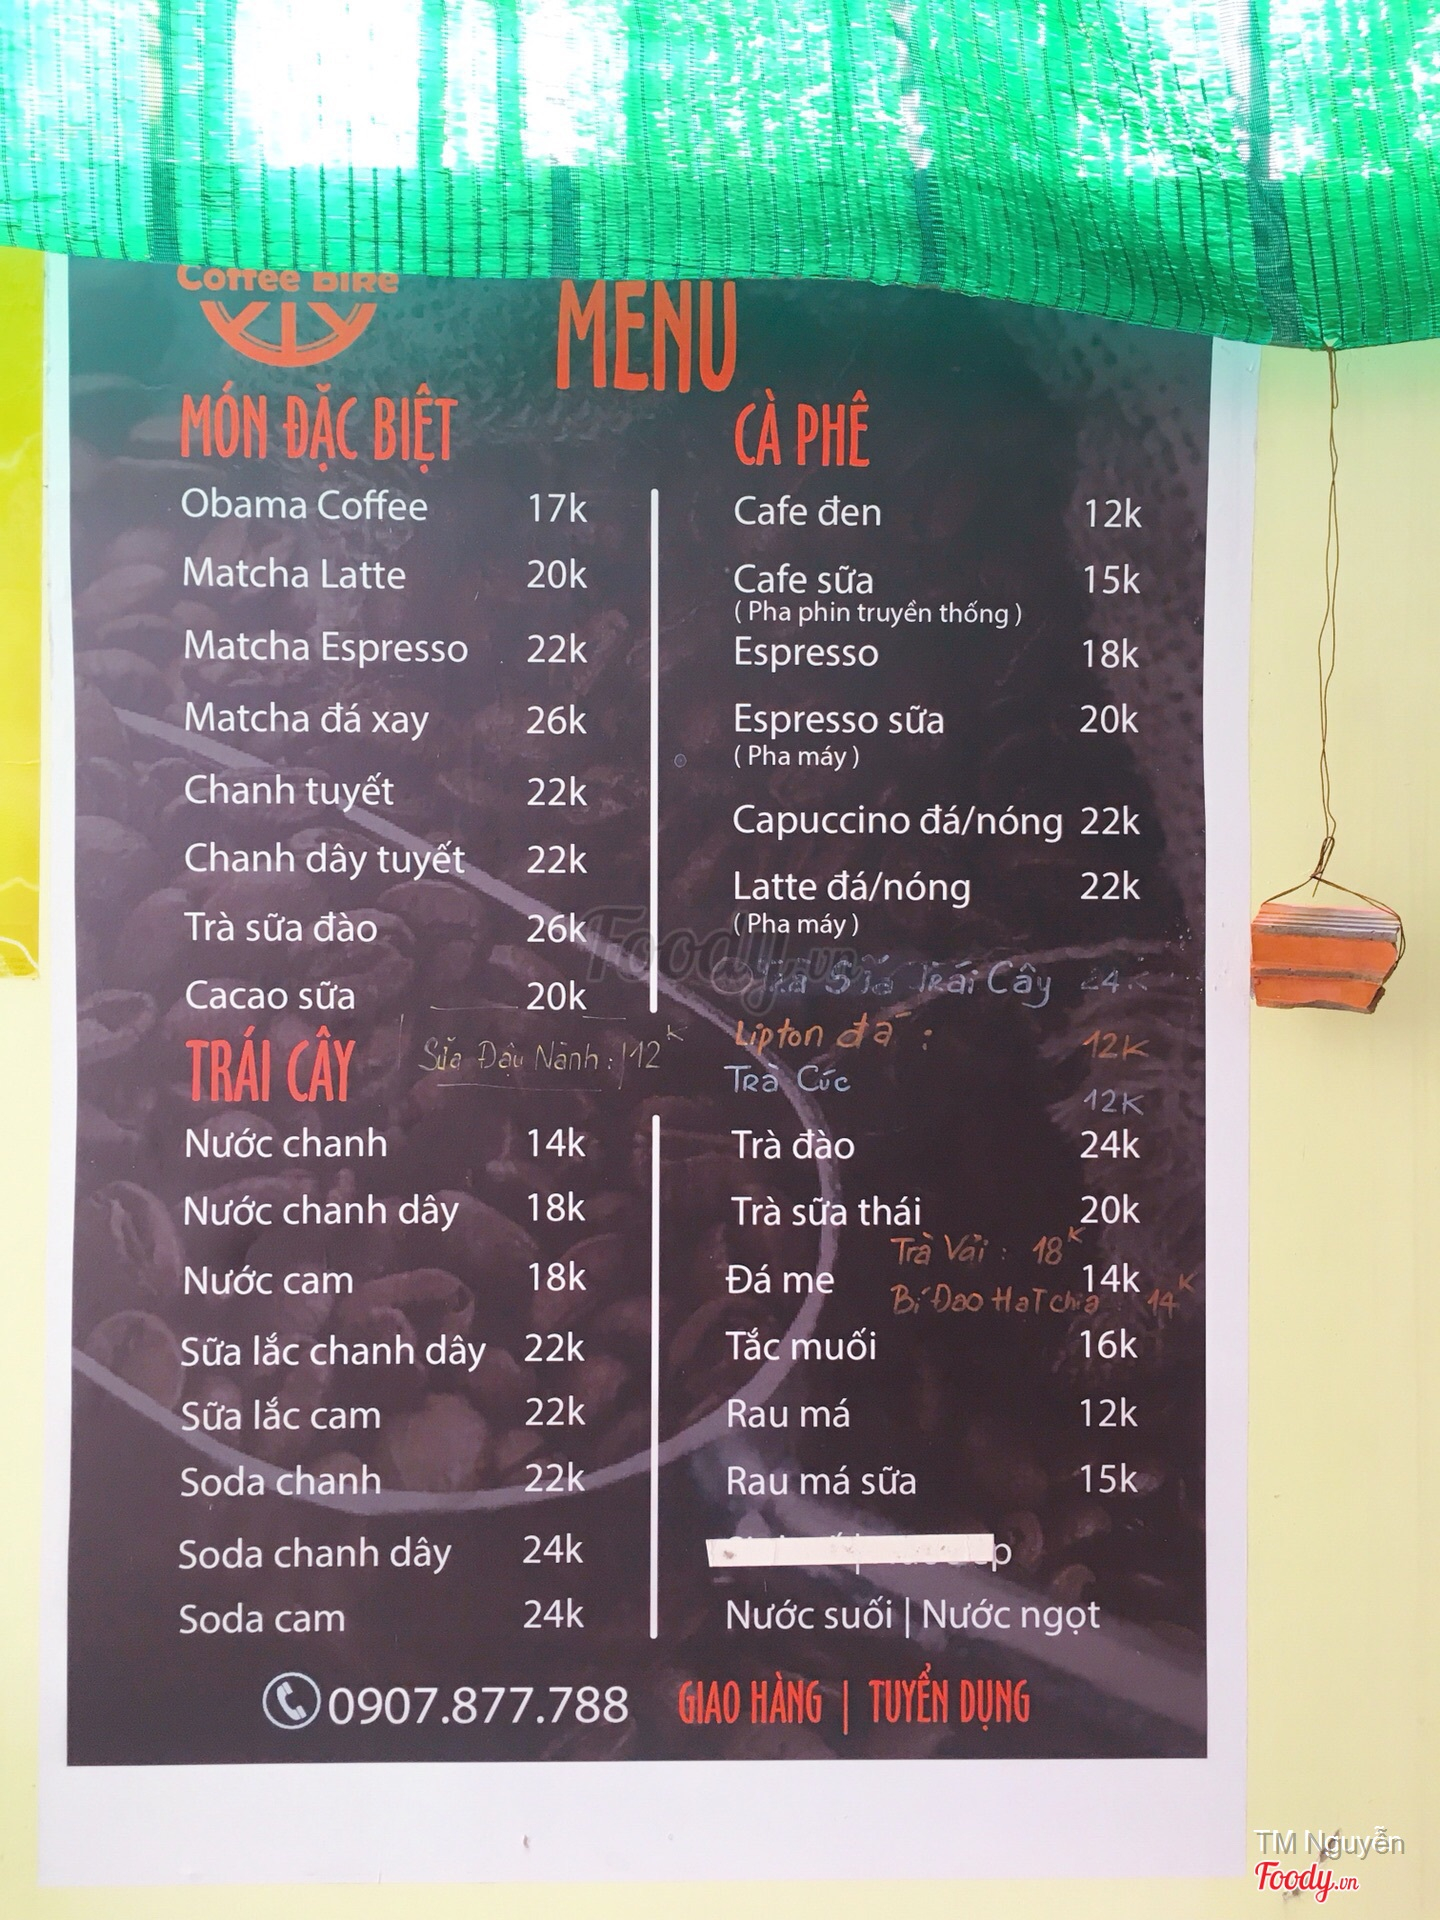 Coffee Bike
MENU
MÓN ĐẶC BIỆT
Obama Coffee 17k
Matcha Latte 20k
Matcha Espresso 22k
Matcha đá xay 26k
Chanh tuyết 22k
Chanh dây tuyết 22k
Trà sữa đào 26k
Cacao sữa 20k
Sữa Đậu Nành : 12K
TRÁI CÂY
Nước chanh 14k
Nước chanh dây 18k
Nước cam 18k
Sữa lắc chanh dây 22k
Sữa lắc cam 22k
Soda chanh 22k
Soda chanh dây 24k
Soda cam 24k
CÀ PHÊ
Cafe đen 12k
Cafe sữa 15k
( Pha phin truyền thống )
Espresso 18k
Espresso sữa 20k
( Pha máy )
Capuccino đá/nóng 22k
Latte đá/nóng 22k
( Pha máy )
Trà Sữa Trái Cây 24K
Lipton đá : 12K
Trà Cúc 12K
Trà đào 24k
Trà sữa thái 20k
Trà Vải : 18K
Đá me 14k
Bí Đao Hạt chia : 14K
Tắc muối 16k
Rau má 12k
Rau má sữa 15k
Nước suối | Nước ngọt
0907.877.788 GIAO HÀNG | TUYỂN DỤNG
Foody.vn
TM Nguyễn
Foody.vn